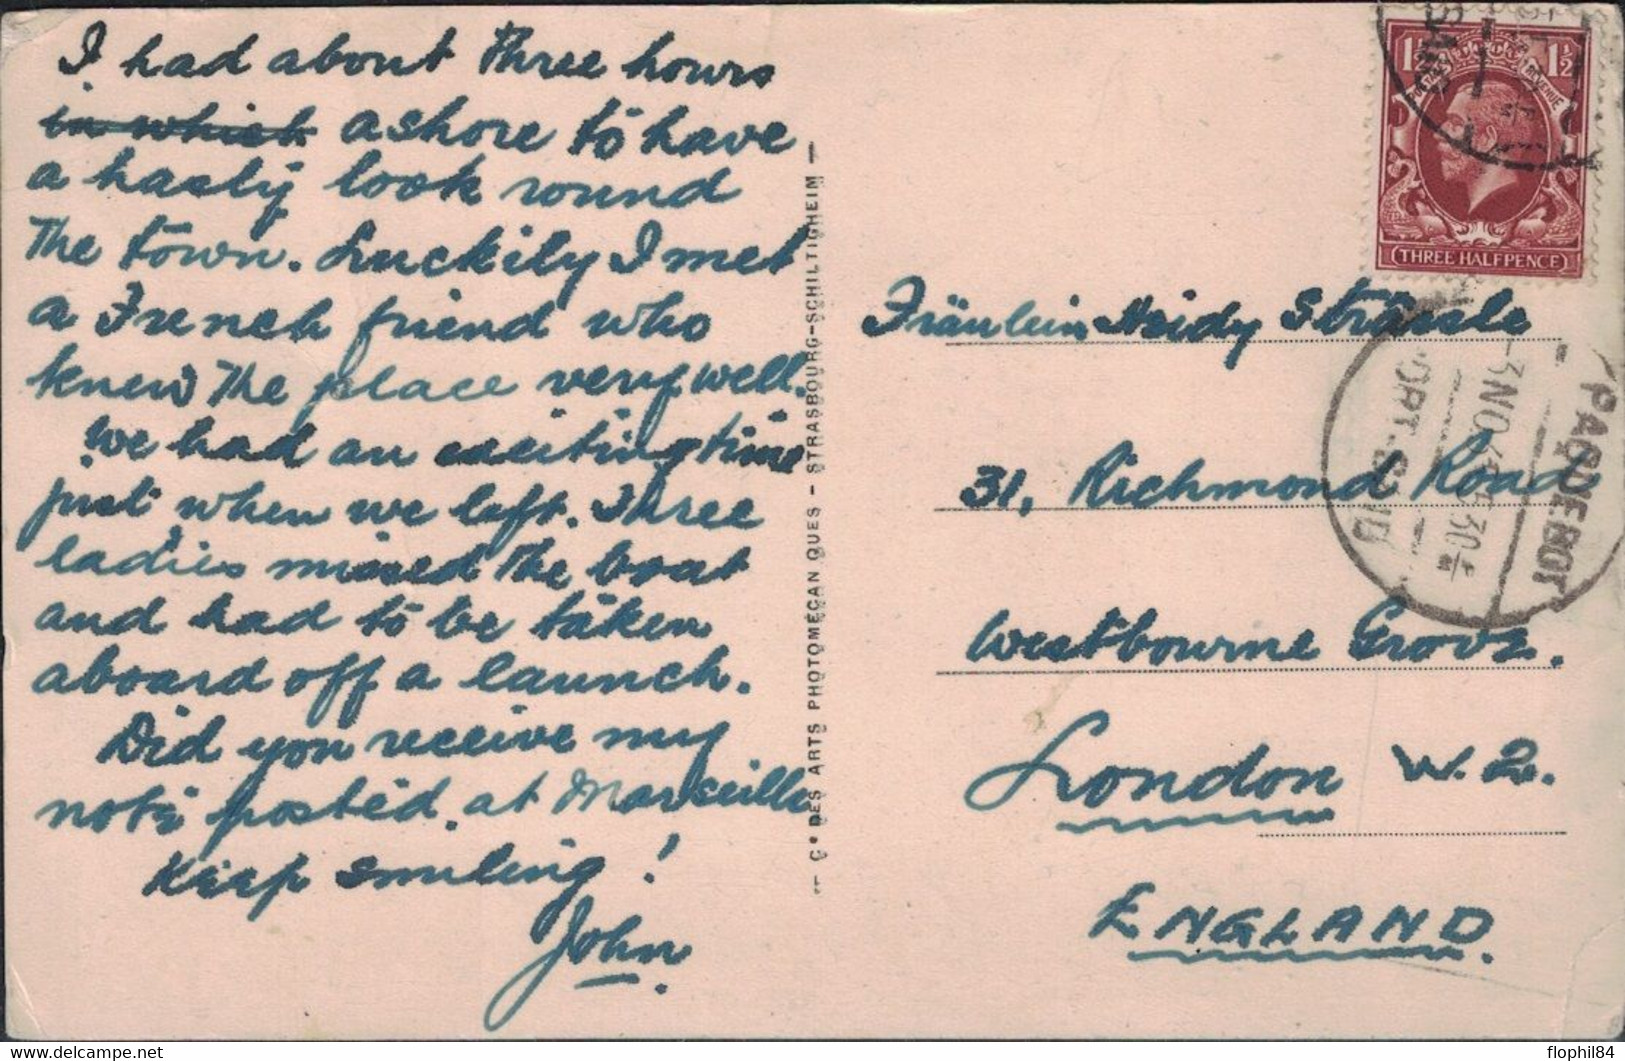 I had about three hours
in which ashore to have
a hasty look round
the town. Luckily I met
a French friend who
knew the place very well.
We had an exciting time
just when we left. Three
ladies missed the boat
and had to be taken
aboard off a launch.
Did you receive my
note posted at Marseille
Keep smiling!
John.
— Cⁱᵉ DES ARTS PHOTOMECANIQUES - STRASBOURG-SCHILTIGHEIM —
1½ 1½
POSTAGE REVENUE
(THREE HALFPENCE)
PAQUEBOT
PORT-SAID
Fräulein Heidy Strässle
31, Richmond Road
Westbourne Grove.
London W.2.
ENGLAND.
flophil84
www.delcampe.net